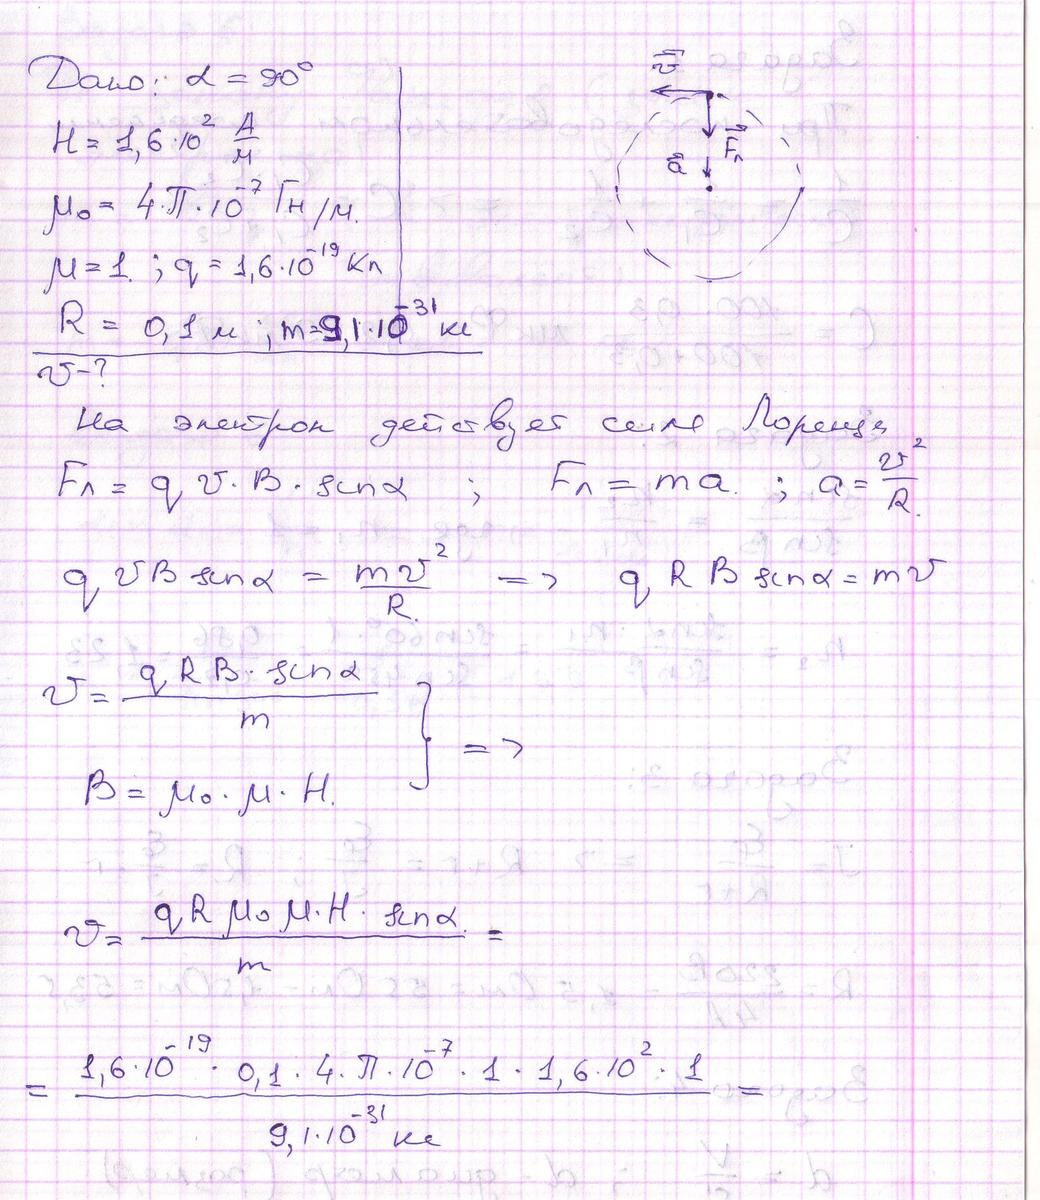 Дано: α = 90°
H = 1,6·10² А/м
μ₀ = 4·П·10⁻⁷ Гн/м.
μ = 1. ; q = 1,6·10⁻¹⁹ Кл
R = 0,1 м ; m = 9,1·10⁻³¹ кг
v - ?
v⃗
F⃗л
a⃗
На электрон действует сила Лоренца
Fл = q v·B·sinα ; Fл = ma. ; a = v²/R.
q v B sinα = mv²/R. => q R B sinα = mv
v = q R B·sinα / m
B = μ₀·μ·H. } =>
v = q R μ₀ μ·H·sinα. / m =
= 1,6·10⁻¹⁹ · 0,1·4·П·10⁻⁷·1·1,6·10²·1 / 9,1·10⁻³¹ кг =